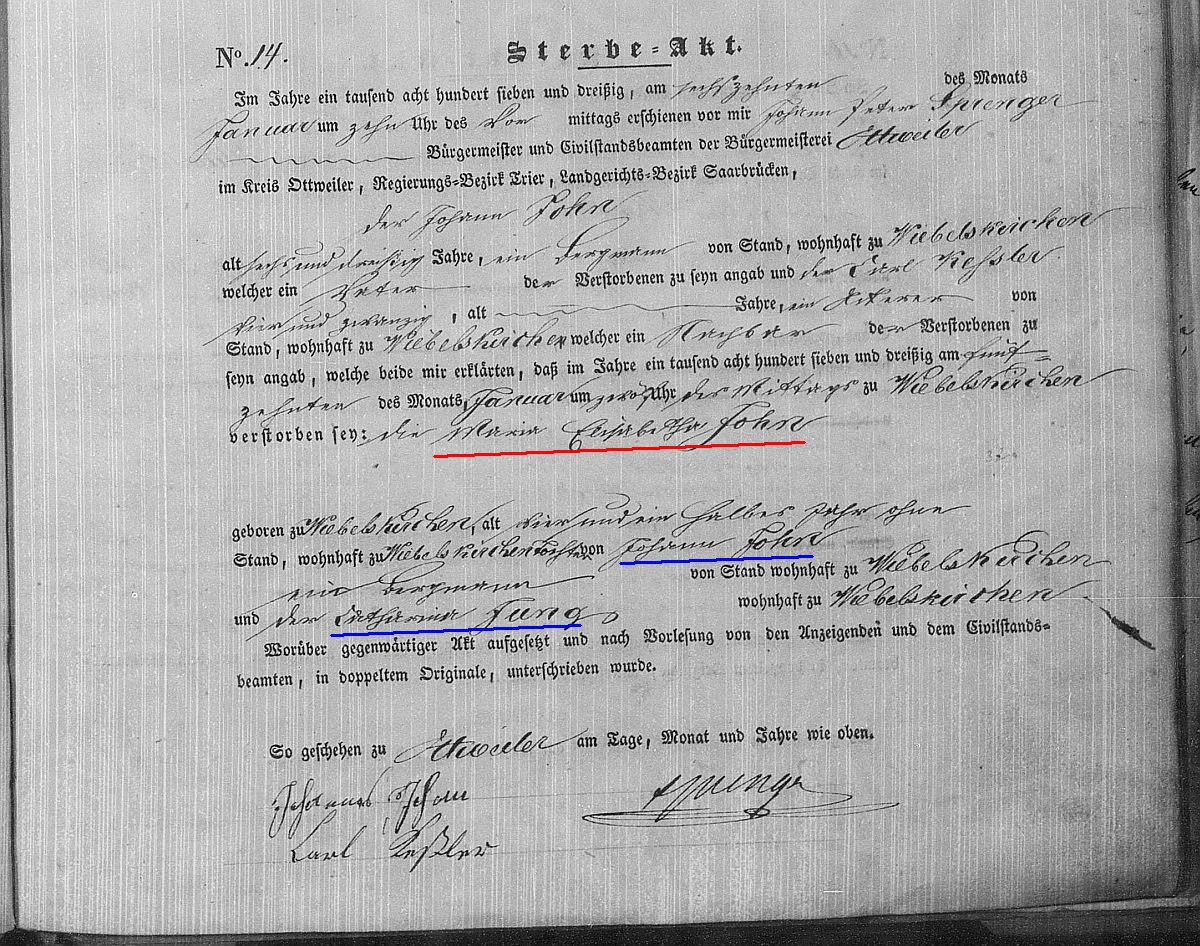 No. 14. Sterbe=Akt.
Im Jahre ein tausend acht hundert sieben und dreißig, am sechszehnten des Monats
Januar um zehn Uhr des Vor mittags erschienen vor mir Johann Peter Sprenger
Bürgermeister und Civilstandsbeamten der Bürgermeisterei Ottweiler
im Kreis Ottweiler, Regierungs=Bezirk Trier, Landgerichts=Bezirk Saarbrücken,
der Johann John
alt sechs und dreißig Jahre, ein Bergmann von Stand, wohnhaft zu Wiebelskirchen
welcher ein Vater der Verstorbenen zu seyn angab und der Carl Kessler.
vier und zwanzig, alt Jahre, ein Ackerer von
Stand, wohnhaft zu Wiebelskirchen welcher ein Nachbar der Verstorbenen zu
seyn angab, welche beide mir erklärten, daß im Jahre ein tausend acht hundert sieben und dreißig am fünf=
zehnten des Monats Januar um zwölf Uhr des Mittags zu Wiebelskirchen
verstorben sey: die Maria Elisabetha John
geboren zu Wiebelskirchen, alt vier und ein halbes Jahr ohne
Stand, wohnhaft zu Wiebelskirchen Tochter von Johann John
ein Bergmann von Stand wohnhaft zu Wiebelskirchen
und der Catharina Jung wohnhaft zu Wiebelskirchen
Worüber gegenwärtiger Akt aufgesetzt und nach Vorlesung von den Anzeigenden und dem Civilstands=
beamten, in doppeltem Originale, unterschrieben wurde.
So geschehen zu Ottweiler am Tage, Monat und Jahre wie oben.
Sprenger
Carl Keßler